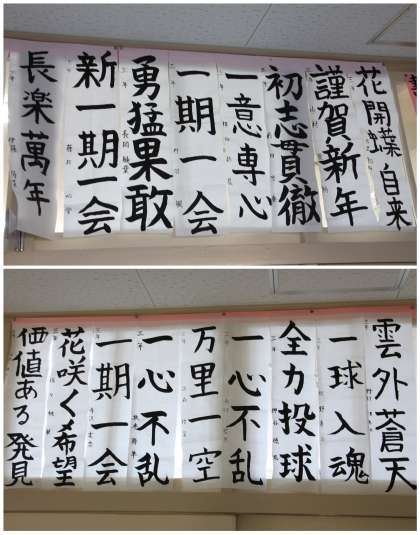 花開蝶自来
謹賀新年
初志貫徹
一意専心
一期一会
勇猛果敢
新一期一会
長楽萬年
雲外蒼天
一球入魂
全力投球
一心不乱
万里一空
一心不乱
一期一会
花咲く希望
価値ある発見